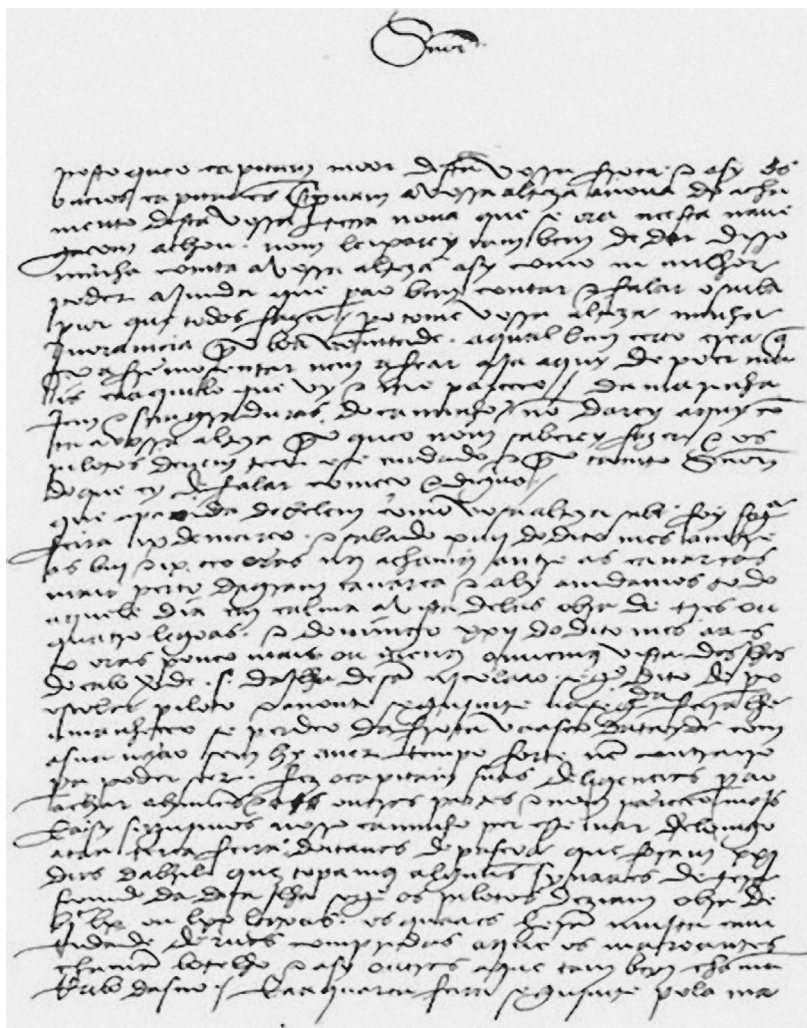 Snor
posto queo capitam moor desta vossa frota e asy os
outros capitaães screpuam a vossa alteza a noua do acha
mento desta vossa terra noua que se ora neesta naue
gaçom achou. nom leixarey tambem de dar disso
minha comta a vossa alteza asy como eu milhor
poder ajmda que pera o bem contar e falar o saiba
pior que todos fazer. pero tome vossa alteza minha
jnoramçia por boa vomtade. a qual bem çerto crea que
por afremosentar nem afear aja aquy de poer mais
ca aquilo que vy e me pareçeo / da marinha
jem e simgraduras do caminho nõ darey aquy cõ
ta a vossa alteza por queo nom saberey fazer e os
pilotos deuem teer ese cuidado e por tamto Snor
do que ey de falar começo e diguo /
que a partida de belem como vosa alteza sabe foy segª
feira ix de março. e sabado xiiij do dito mes amtre
as biij e ix oras nos achamos amtre as canareas
mais perto da gram canarea e aly amdamos todo
aquele dia em calma a vista delas obra de tres ou
quatro legoas. e domingo xxij do dito mes aas
x oras pouco mais ou menos ouuemos vista das jlhas
do cabo verde. s. da jlha de sã njcolaao segº dito de pero
escolar piloto. e a noute segujmte aa segda feira lhe
amanheceo se perdeo da frota vaasco datayde com
a sua naao sem hy auer tempo forte nẽ contrairo
pera poder seer. fez o capitam suas deligençias pera o
achar a huũas e a outras partes e nom pareçeo majs
E asy segujmos nosso caminho per este mar de lomgo
ataa terça feira doitauas de pascoa que foram xxj
dias dabril que topamos alguũs synaaes de tera
seemdo da dita jlha segº os pilotos deziam obra de
bjc lx ou lxx legoas. os quaaes heram mujta cam
tidade deruas compridas a que os mareantes
chamã botelho e asy outras a que tam bem chamã
Rabo dasno / E aa quarta feira segujmte pola ma